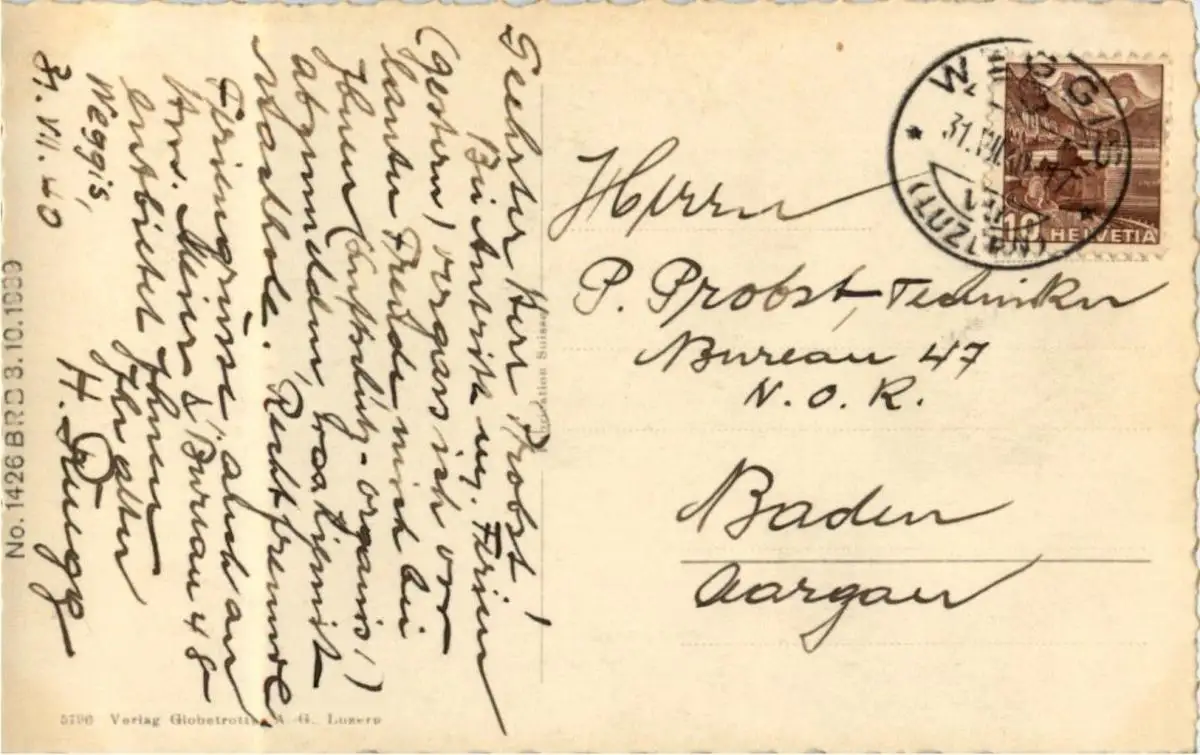 Geehrter Herr Probst!
Bei Antritt m. Ferien
(gestern) vergass ich vor
lauter Freude mich bei
Ihnen (Luftschutz-organis!)
abzumelden, was hiermit
nachhole. Recht freundl
Feriengrüsse, auch an
Hrn. Meier & Bureau 48
entbietet Ihnen
Ihr alter
H. Rüegg
Weggis,
31. VII. 40
No. 1426 BRD 3.10.1939
5796 Verlag Globetrotter A. G. Luzern
Suisse
WEGGIS
31.VII.40
(LUZERN)
10
HELVETIA
Herrn
P. Probst, Techniker
Bureau 47
N. O. R.
Baden
Aargau